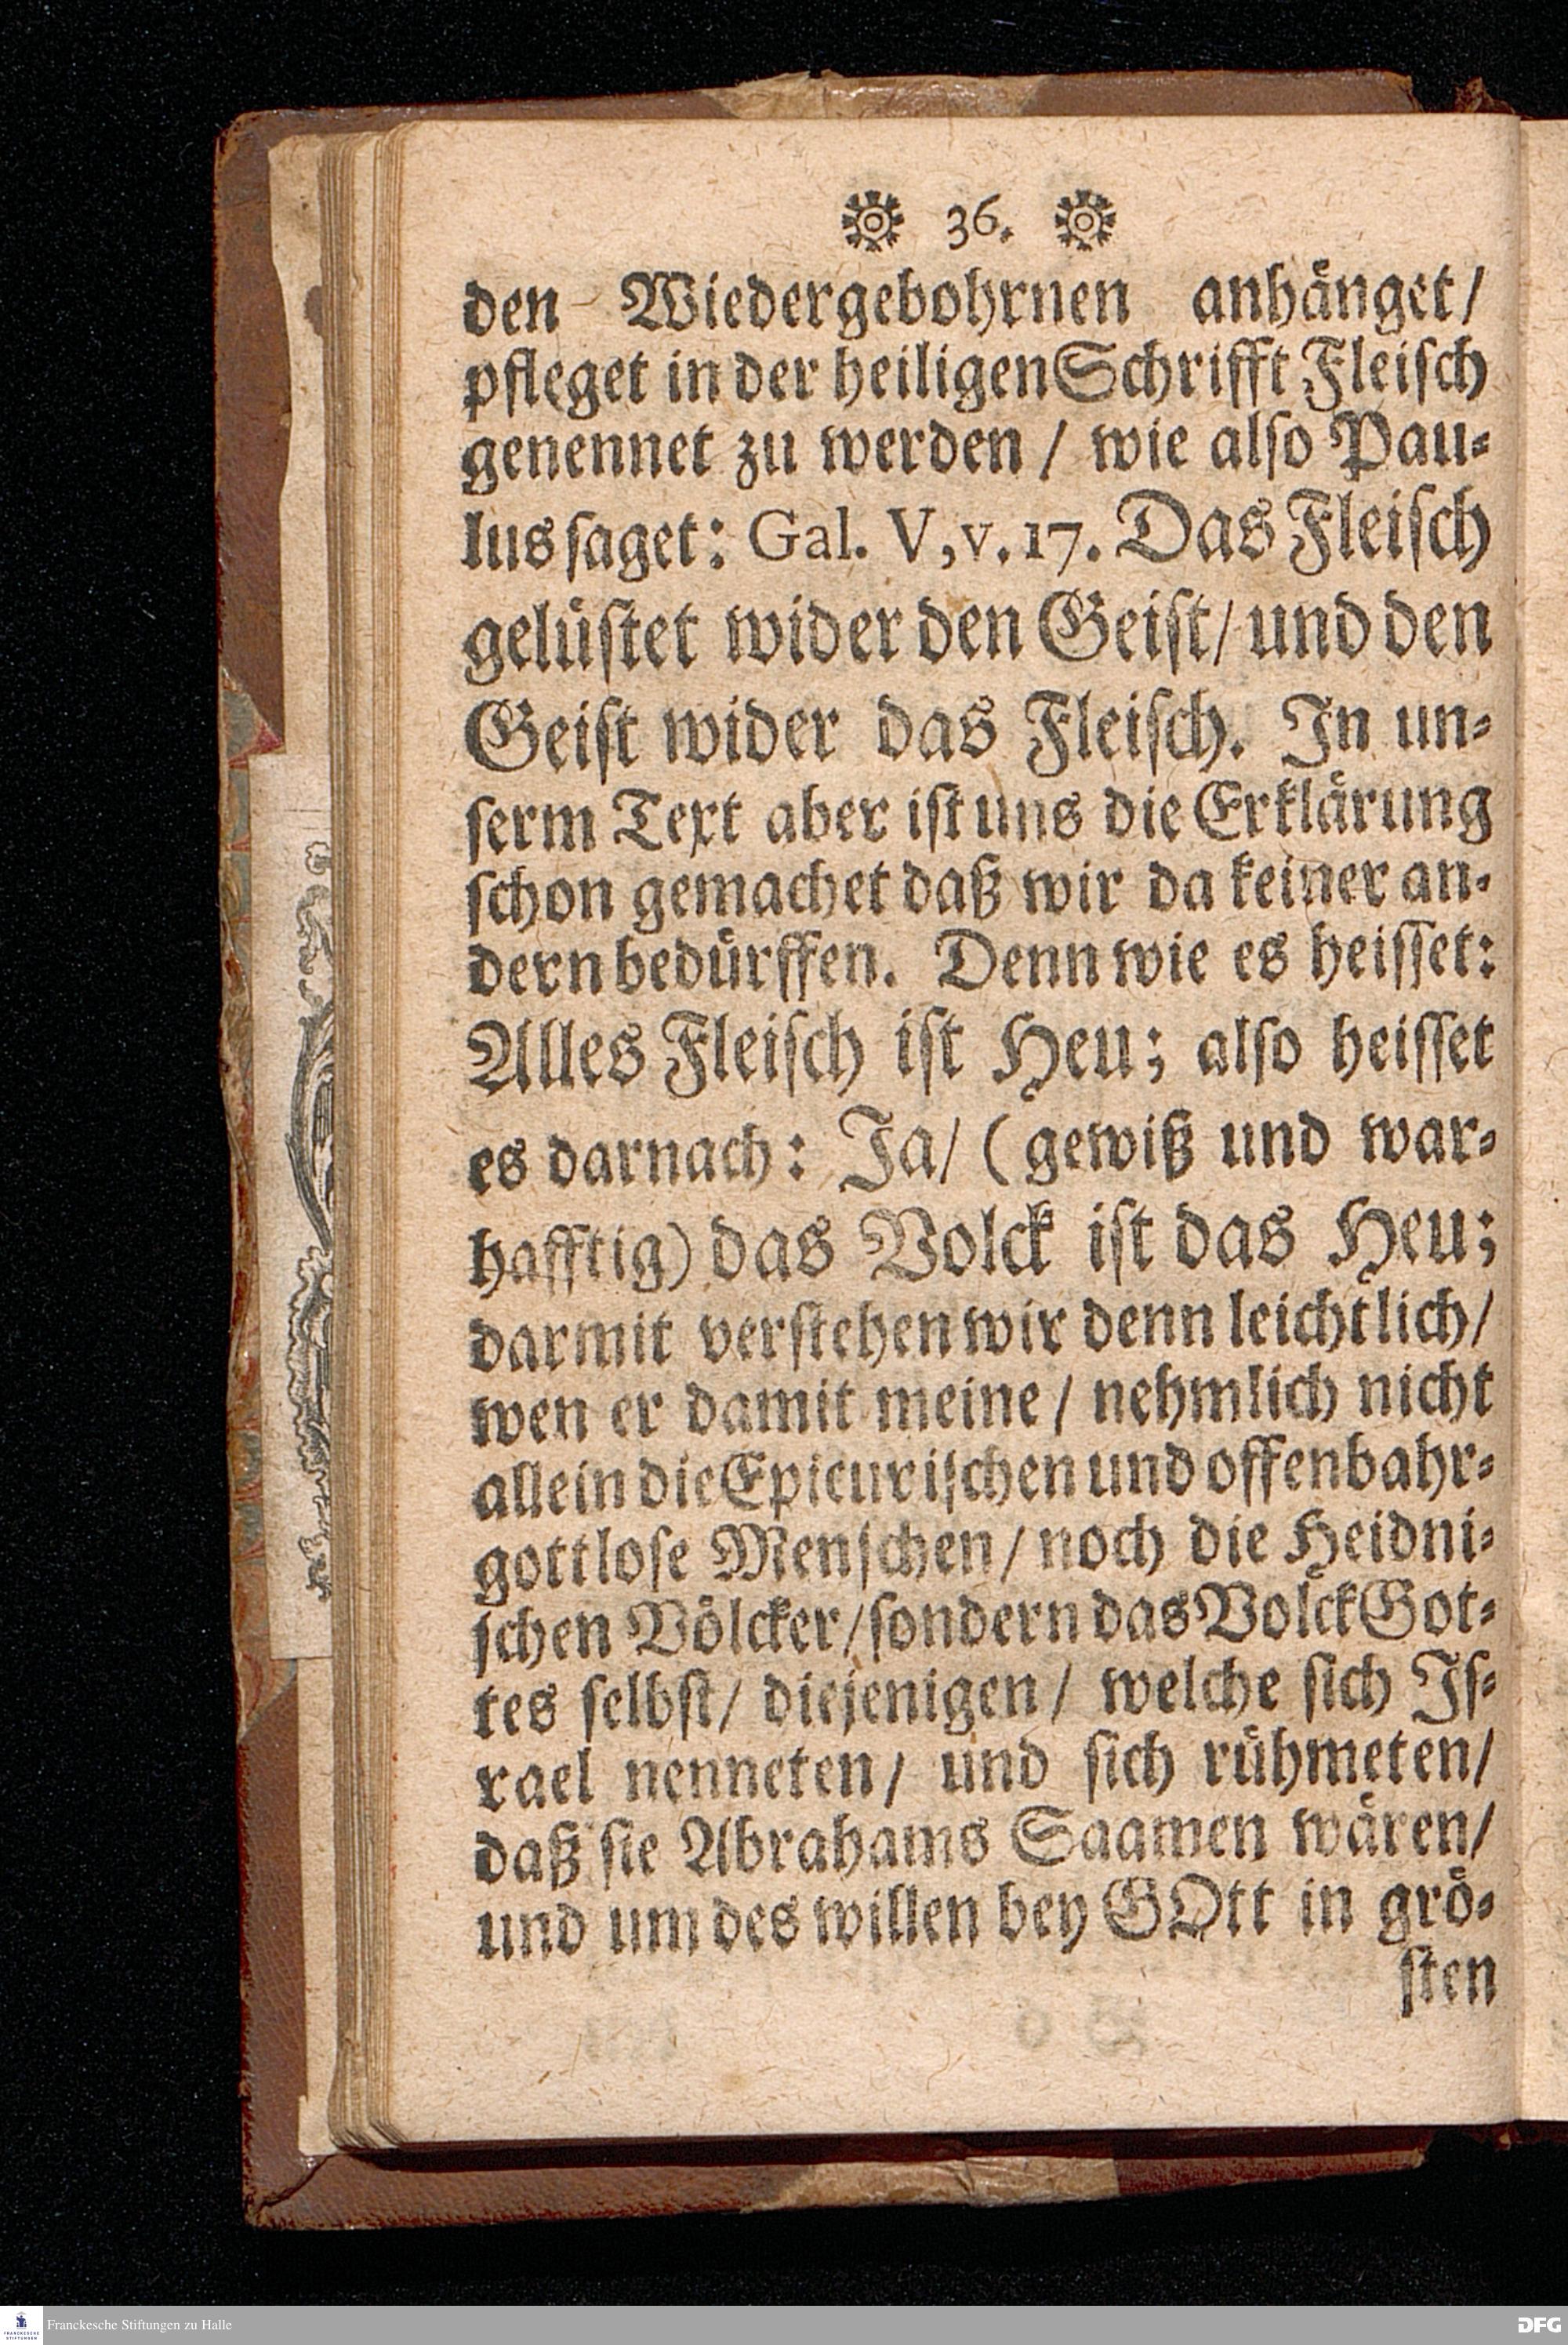 36.
den Wiedergebohrnen anhänget/
pfleget in der heiligen Schrifft Fleisch
genennet zu werden / wie also Pau-
lus saget: Gal. V, v. 17. Das Fleisch
gelüstet wider den Geist/ und den
Geist wider das Fleisch. In un-
serm Text aber ist uns die Erklärung
schon gemachet daß wir da keiner an-
dern bedürffen. Denn wie es heisset:
Alles Fleisch ist Heu; also heisset
es darnach: Ja/ (gewiß und war-
hafftig) das Volck ist das Heu;
darmit verstehen wir denn leichtlich/
wen er damit meine / nehmlich nicht
allein die Epicurischen und offenbahr-
gottlose Menschen / noch die Heidni-
schen Völcker/ sondern das Volck Got-
tes selbst/ diejenigen/ welche sich Is-
rael nenneten/ und sich rühmeten/
daß sie Abrahams Saamen wären/
und um des willen bey GOtt in grö-
sten
FRANCKESCHE STIFTUNGEN
Franckesche Stiftungen zu Halle
DFG